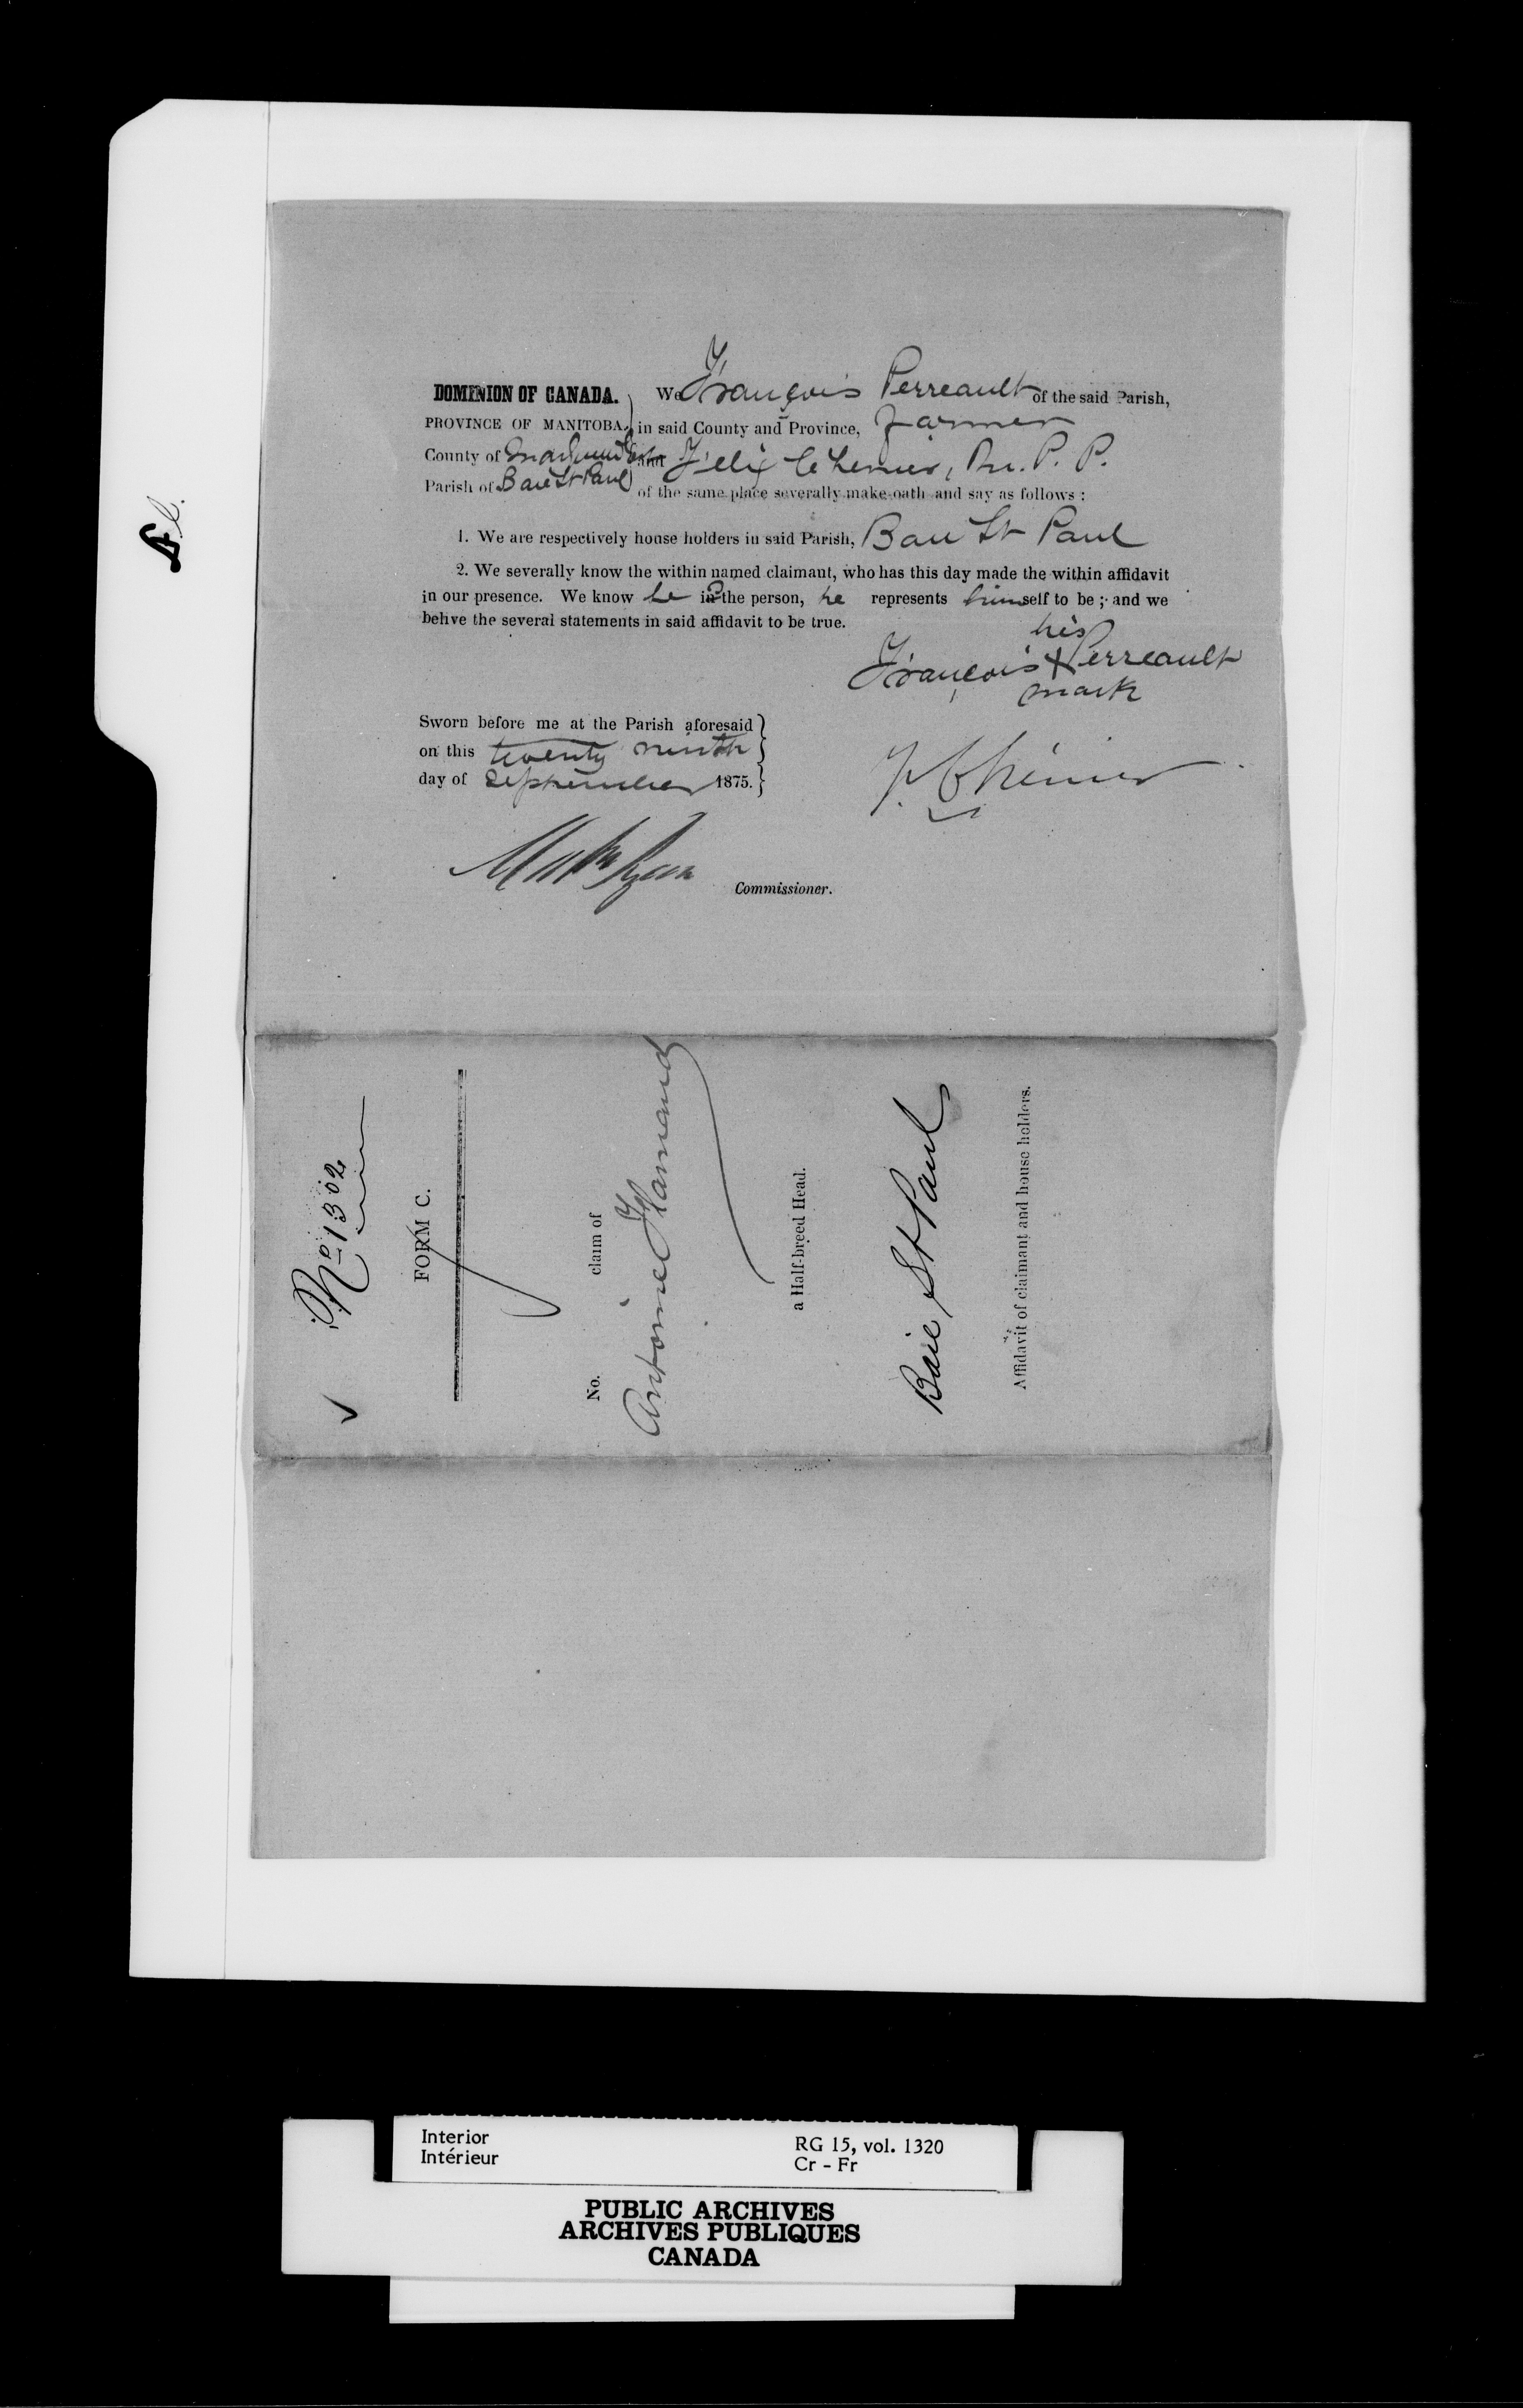 DOMINION OF CANADA. We François Perreault of the said Parish,
PROVINCE OF MANITOBA, in said County and Province, Farmer
County of and Felix Chenier, M. P. P.
Parish of Baie St Paul of the same place severally make oath and say as follows :
1. We are respectively house holders in said Parish, Baie St Paul
2. We severally know the within named claimant, who has this day made the within affidavit
in our presence. We know he is the person, he represents himself to be ; and we
belive the several statements in said affidavit to be true.
his
François X Perreault
mark
Sworn before me at the Parish aforesaid
on this twenty ninth
day of September 1875.
F. Chénier
Commissioner.
No 1302
FORM C.
No. claim of
Antoine Flamand
a Half-breed Head.
Baie St Paul
Affidavit of claimant and house holders.
Interior RG 15, vol. 1320
Intérieur Cr - Fr
PUBLIC ARCHIVES
ARCHIVES PUBLIQUES
CANADA